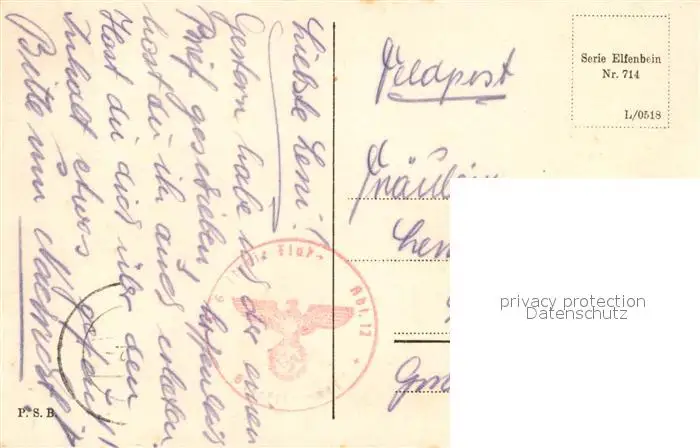 Liebste Leni!
Gestern habe ich dir einen
Brief geschrieben, hoffentlich
hast du ihn auch erhalten.
Hast du dich über den
Inhalt etwas gefreut?
Bitte um Nachricht!
P. S. B.
Feldpost
Serie Elfenbein
Nr. 714
L/0518
Fräulein
Leni
privacy protection
Datenschutz
Abt. 12